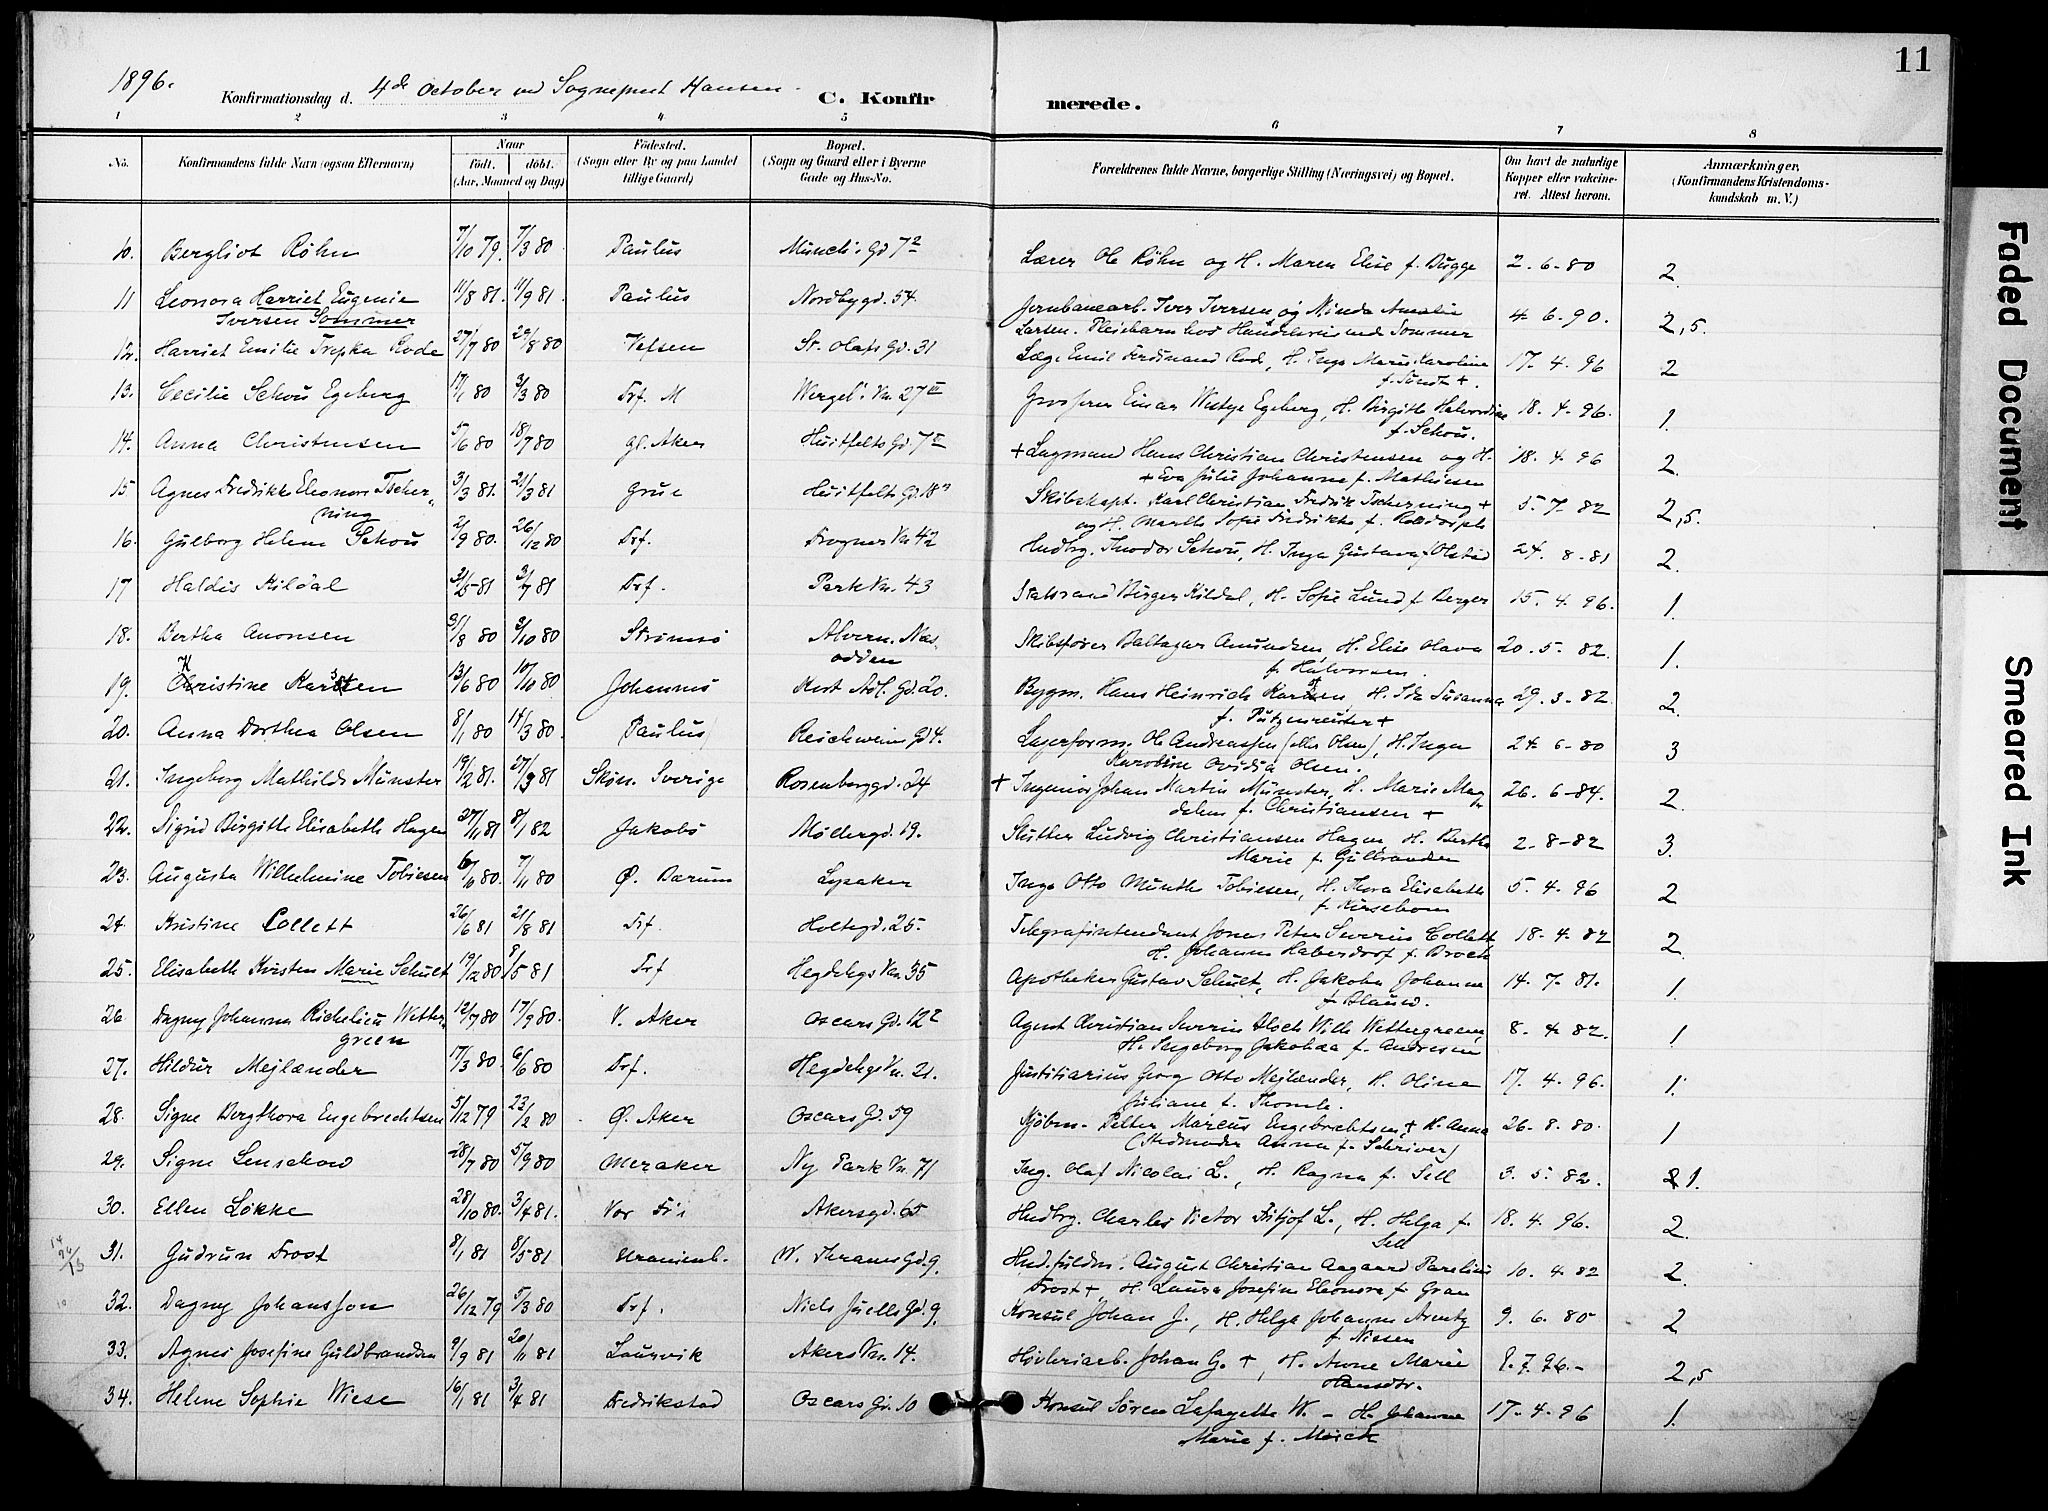 11
1896. Konfirmationsdag d. 4de October ved Sogneprest Hansen. C. Konfirmerede.
1 2 3 4 5 6 7 8
No. Konfirmandens fulde Navn (ogsaa Efternavn) Naar født. døbt. (Aar, Maaned og Dag) Fødested. (Sogn eller By og paa Landet tillige Gaard) Bopæl. (Sogn og Gaard eller i Byerne Gade og Hus-No. Forældrenes fulde Navne, borgerlige Stilling (Næringsvei) og Bopæl. Om havt de naturlige Kopper eller vakcineret. Attest herom. Anmærkninger. (Konfirmandens Kristendomskundskab m. V.)
10. Bergliot Røhn 7/10 79. 7/3 80 Paulus Munchs Gd 7² Lærer Ole Røhn og H. Maren Elise f. Bugge 2-6-80 2.
11 Leonora Harriet Eugenie 11/8 81. 11/9 81. Paulus Nordbygd. 54. Jernbanearb. Iver Iversen og Minda Amalie 4-6-90. 2,5.
Iversen Sommer Larsen. Pleiebarn hos Sommer
12. Harriet Emilie Trepka Rode 27/7 80 29/8 80 Vefsen St. Olafs Gd. 31 Læge Emil Ferdinand Rode, H. Inga Marie Karoline 17-4-96 2
f. Sundt +.
13. Cecilie Schou Egeberg 17/1 80 3/3 80 Trf. M Wergel. Vn. 27 III Grosserer Einar Westye Egeberg, H. Birgitte Halvordine 18.4-96. 1.
f. Schou.
14. Anna Christensen 5/6 80 18/7 80 gl. Aker Huitfelts Gd. 7 II + Lagmand Hans Christian Christensen og H. 18.4.96 2.
+ Eva Julie Johanne f. Mathiesen
15. Agnes Fredrikke Eleonora Tscher- 3/3 81. 21/3 81 Grue Huitfelts Gd. 18 Skibskapt. Karl Christian Fredrik Tscherning + 5-7-82 2,5.
ning og H. Marthe Sofie Fredrikke f.
16. Gulborg Helene Schou 2/9 80. 26/12 80 Trf. Frogner Vn 42 Hndbrg. Thodor Schou, H. Inga Gustava f Olstad 24.8-81 2.
17 Haldis Kildal 81 3/7 81 Trf. Park Vn. 43 Statsraad Birger Kildal, H. Sofie Lund f. Berger 15.4.96. 1.
18. Bertha Amonsen 31/8 80 3/10 80 Strømsø Alvern. Næs- Skibsfører Baltazar Amundsen, H. Elise Olava 20.5.82. 1.
odden f. Halvorsen.
19. Kristine Karsten 13/6 80 10/10 80 Johannes Kort Adl. Gd. 20. Bygm. Hans Heinrich Karsten, H. Ida Susanna 29.3-82. 2.
f. Putzenreuter +
20. Anna Dorthea Olsen 8/1 80 14/3 80 Paulus Reichwein Gd 4. Lagerform. Ole Andreassen (eller Olsen), H. Inga 24-6-80 3
Karoline Ovidia Olsen.
21. Ingeborg Mathilde Münster 19/2 81. 27/3 81 Sköv. Sverige Rosenborggd. 24 + Ingeniør Johan Martin Münster, H. Marie Mag- 26.6-84. 2.
dalene f. Christiansen +
22. Sigrid Birgitte Elisabeth Hagen 27/11 81 8/1 82 Jakobs Møllergd. 19. Slutter Ludvig Christiansen Hagen, H. Berthe 2-8-82 3.
Marie f. Gulbrandsen
23. Augusta Wilhelmine Tobiesen 6/10 80. 7/11 80 Ø. Bærum Lysaker Ing. Otto Munthe Tobiesen, H. Thora Elisabeth 5.4.96 2
f. Kirsebom
24. Kristine Collett 26/6 81 21/8 81 Trf. Holtegd. 25. Telegrafintendant Jonas Peter Severin Collett 18-4-82 2.
H. Johanne f. Broch
25. Elisabeth Kirsten Marie Schult 19/12 80 8/5 81 Trf Hegdehgs Vn. 35 Apotheker Gustav Schult, H. Jakoba Johanna 14.7-81. 1.
f. Blauw.
26 Dagny Johanna Richelieu Wetter- 12/7 80 17/9 80. V. Aker Oscars Gd. 12² Agent Christian Severin Wilh. Wettergreen, 8.4-82. 1
green H. Ingeborg Jakobæa f. Andresen
27. Hildur Mejlænder 17/3 80. 6/6 80 Trf. Hegdehgs Vn. 21. Justitiarius Georg Otto Mejlænder, H. Oline 17.4.96. 1.
Juliane f. Thomle.
28. Signe Bergthora Engebrechtsen 5/12 79 23/2 80 Ø. Aker Oscars Gd. 59 Kjøbm. Petter Marcus Engebrechtsen, + H. Anna 26-8.80. 1
(Stedmoder Anna f. Schriver)
29. Signe Lenschow 28/7 80 5/9 80 Meraker Ny Park Vn. 71 Ing. Olaf Nicolai L., H. Ragna f. Sell 3.5.82. 1.
30. Ellen Løkke 28/10 80. 3/4 81. Vor Frs Akersgd. 65 Hndbrg. Charles Victor Fritjof L., H. Helga f. 18.4.96. 2.
Sell
31. Gudrun Frost 8/1 81 8/5 81 Uranienb. W. Thranes Gd. 9. Hnd.fuldm. August Christian Aagaard Parelius 10.4.82 2.
Frost +, H. Laura Josefine Eleonora f. Gran
32. Dagny Johansson 26/12 79 5/3 80 Trf. Niels Juels Gd. 9 Konsul Johan J., H. Helga Johanne Arentz 9.6.80 2
f. Nissen
33. Agnes Josefine Guldbrandsen 9/9 81 20/11 81 Laurvik Akers Vn. 14. Høvleriarb. Johan G. +, H. Anne Marie 96.- 2,5
Hansdtr.
34. Helene Sophie Wiese 16/1 81 3/4 81 Fredrikstad Oscars Gd. 10 Konsul Søren Lafayette W. - H. Johanne 17-4-96 1.
Marie f. Møick
Faded Document
Smeared Ink